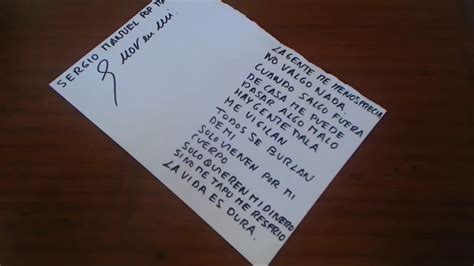 SERGIO MANUEL POP
LA GENTE ME MENOSPRECIA
NO VALGO NADA
CUANDO SALGO FUERA
DE CASA ME PUEDE
PASAR ALGO MALO
HAY GENTE MALA
ME VIGILAN
TODOS SE BURLAN
DE MI
SOLO VIENEN POR MI
CUERPO
SOLO QUIEREN MI DINERO
SINO ME TAPO ME RESFRIO
LA VIDA ES DURA.